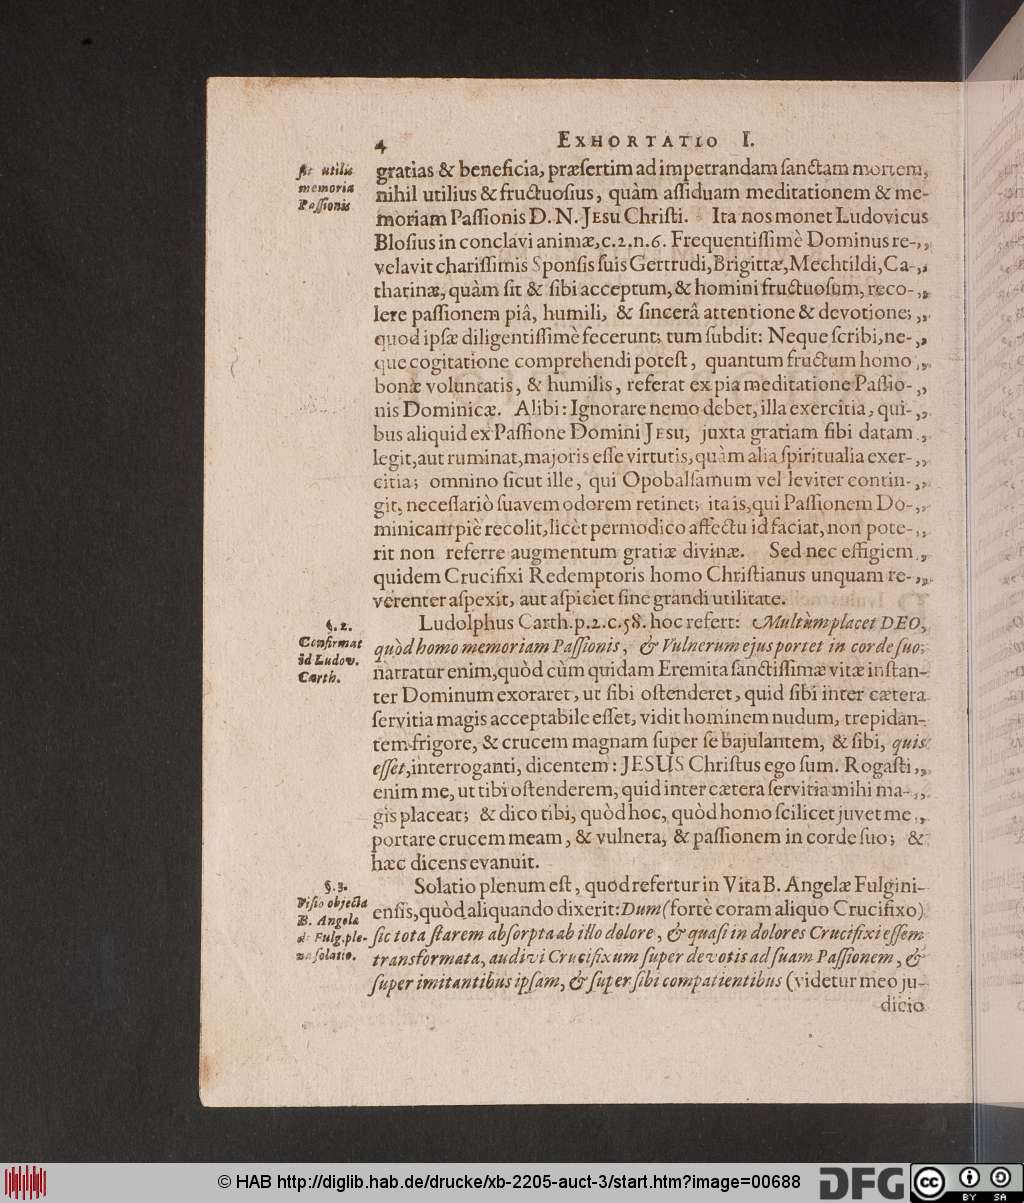 4 EXHORTATIO I.
ſit utilis
memoria
Paſſionis
gratias & beneficia, præſertim ad impetrandam ſanctam mortem,
nihil utilius & fructuoſius, quàm aſſiduam meditationem & me-
moriam Paſſionis D. N. JESU Chriſti. Ita nos monet Ludovicus
Bloſius in conclavi animæ, c. 2. n. 6. Frequentiſſimè Dominus re- ,,
velavit chariſſimis Sponſis ſuis Gertrudi, Brigittæ, Mechtildi, Ca- ,,
tharinæ, quàm ſit & ſibi acceptum, & homini fructuoſum, reco- ,,
lere paſſionem piâ, humili, & ſincerâ attentione & devotione; ,,
quod ipſæ diligentiſſimè fecerunt; tum ſubdit: Neque ſcribi, ne- ,,
que cogitatione comprehendi poteſt, quantum fructum homo ,,
bonæ voluntatis, & humilis, referat ex pia meditatione Paſſio- ,,
nis Dominicæ. Alibi: Ignorare nemo debet, illa exercitia, qui- ,,
bus aliquid ex Paſſione Domini JESU, juxta gratiam ſibi datam ,,
legit, aut ruminat, majoris eſſe virtutis, quàm alia ſpiritualia exer- ,,
citia; omnino ſicut ille, qui Opobalſamum vel leviter contin- ,,
git, neceſſariò ſuavem odorem retinet; ita is, qui Paſſionem Do- ,,
minicam piè recolit, licèt permodico affectu id faciat, non pote- ,,
rit non referre augmentum gratiæ divinæ. Sed nec effigiem ,,
quidem Crucifixi Redemptoris homo Chriſtianus unquam re- ,,
verenter aſpexit, aut aſpiciet ſine grandi utilitate.
§. 2.
Confirmat
id Ludov.
Carth.
Ludolphus Carth. p. 2. c. 58. hoc refert: Multùm placet DEO,
quòd homo memoriam Paſſionis, & Vulnerum ejus portet in corde ſuo;
narratur enim, quòd cùm quidam Eremita ſanctiſſimæ vitæ inſtan-
ter Dominum exoraret, ut ſibi oſtenderet, quid ſibi inter cætera
ſervitia magis acceptabile eſſet, vidit hominem nudum, trepidan-
tem frigore, & crucem magnam ſuper ſe bajulantem, & ſibi, quis
eſſet, interroganti, dicentem: JESUS Chriſtus ego ſum. Rogaſti ,,
enim me, ut tibi oſtenderem, quid inter cætera ſervitia mihi ma- ,,
gis placeat; & dico tibi, quòd hoc, quòd homo ſcilicet juvet me ,,
portare crucem meam, & vulnera, & paſſionem in corde ſuo; &
hæc dicens evanuit.
§. 3.
Viſio objecta
B. Angelæ
de Fulg. ple-
na ſolatio.
Solatio plenum eſt, quod refertur in Vita B. Angelæ Fulgini-
enſis, quòd aliquando dixerit: Dum (fortè coram aliquo Crucifixo)
ſic tota ſtarem abſorpta ab illo dolore, & quaſi in dolores Crucifixi eſſem
transformata, audivi Crucifixum ſuper devotis ad ſuam Paſſionem, &
ſuper imitantibus ipſam, & ſuper ſibi compatientibus (videtur meo ju-
dicio
© HAB http://diglib.hab.de/drucke/xb-2205-auct-3/start.htm?image=00688
DFG
cc
BY SA